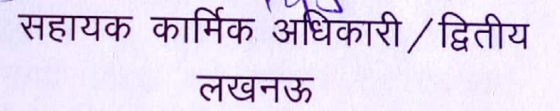 सहायक कार्मिक अधिकारी / द्वितीय
लखनऊ